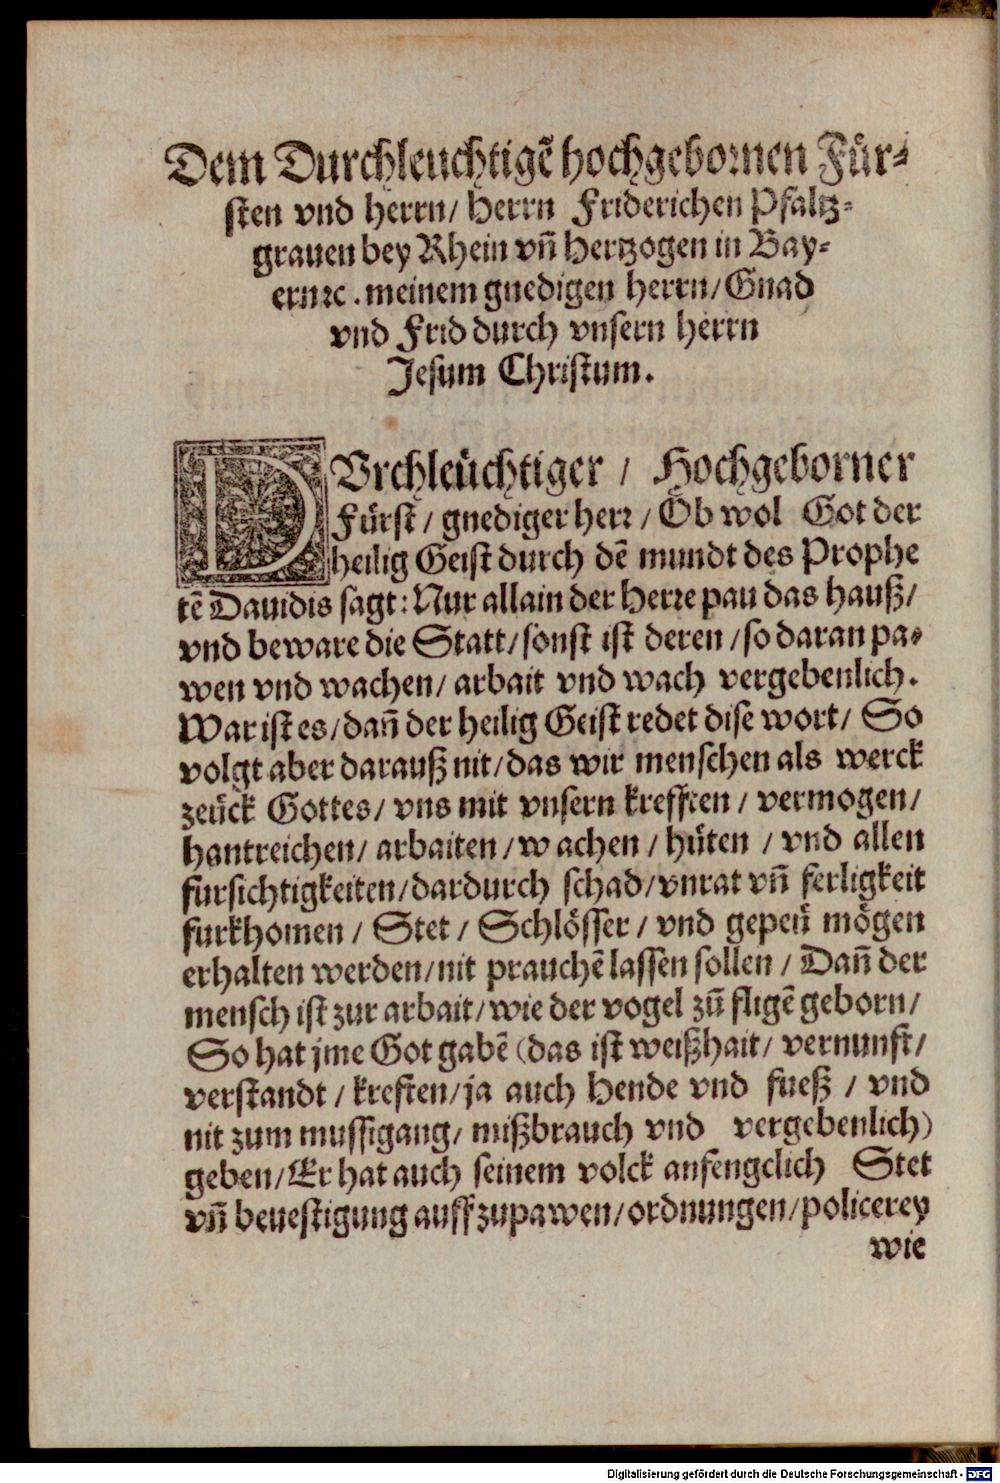 Dem Durchleuchtigẽ hochgebornen Für-
sten vnd herrn/ Herrn Friderichen Pfaltz-
grauen bey Rhein vñ Hertzogen in Bay-
ern ꝛc. meinem gnedigen herrn/ Gnad
vnd Frid durch vnsern herrn
Jesum Christum.
DVrchleüchtiger / Hochgeborner
Fürst / gnediger herr / Ob wol Got der
heilig Geist durch dẽ mundt des Prophe
tẽ Dauidis sagt: Nur allain der Herre pau das hauß/
vnd beware die Statt/ sonst ist deren / so daran pa-
wen vnd wachen/ arbait vnd wach vergebenlich.
War ist es/ dañ der heilig Geist redet dise wort/ So
volgt aber darauß nit/ das wir menschen als werck
zeück Gottes/ vns mit vnsern krefften / vermogen/
hantreichen/ arbaiten / wachen / hüten / vnd allen
fursichtigkeiten/ dardurch schad/ vnrat vñ ferligkeit
furkhomen / Stet / Schlösser / vnd gepeü mögen
erhalten werden/ nit prauchẽ lassen sollen / Dañ der
mensch ist zur arbait/ wie der vogel zũ fligẽ geborn/
So hat jme Got gabẽ (das ist weißhait/ vernunft/
verstandt / kreften/ ja auch Hende vnd fueß / vnd
nit zum mussigang/ mißbrauch vnd vergebenlich)
geben/ Er hat auch seinem volck anfengclich Stet
vñ beuestigung auffzupawen/ ordnungen/ policerey
wie
Digitalisierung gefördert durch die Deutsche Forschungsgemeinschaft - DFG